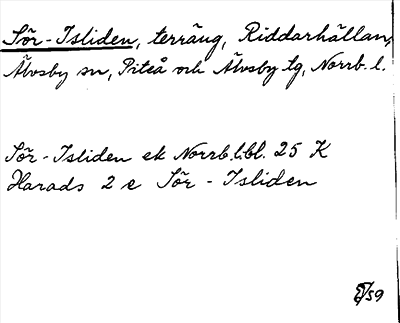 Sör-Isliden, terräng, Riddarhällan,
Älvsby sn, Piteå och Älvsby tg, Norrb. l.
Sör-Isliden ek Norrb.l.bl. 25 K
Harads 2 e Sör-Isliden
/59